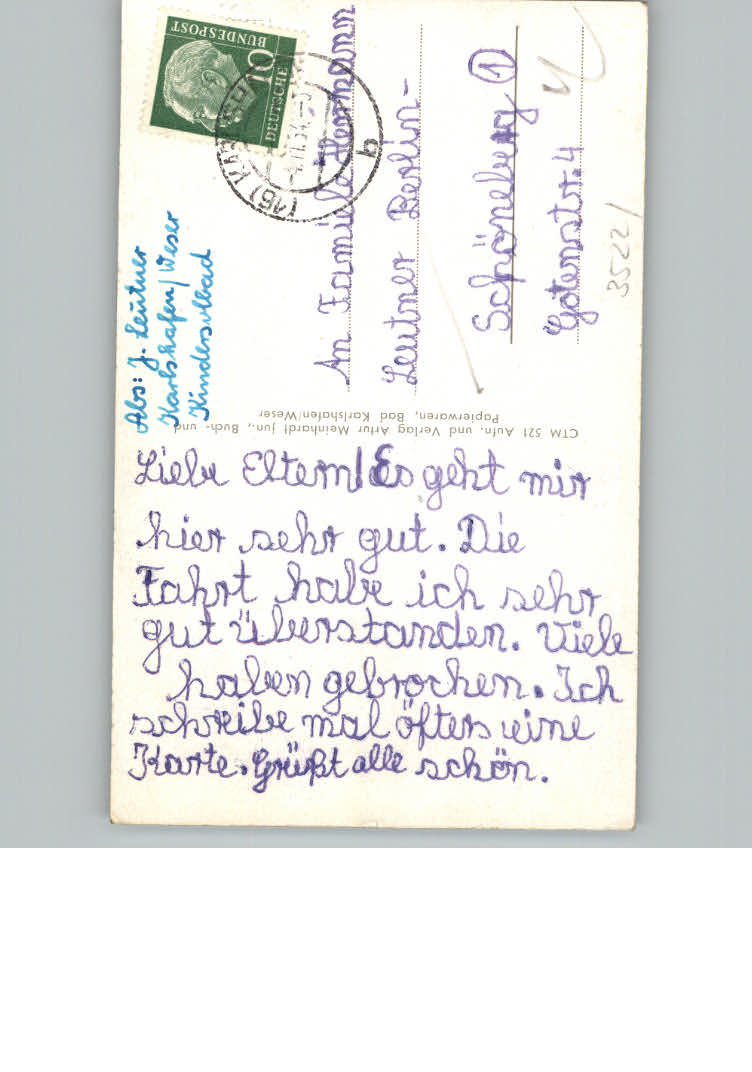 Abs: J. Leutner
Karlshafen/Weser
Kindersolbad
DEUTSCHE
BUNDESPOST
10
(16) KA
b
An Familie Hermann
Leutner Berlin-
Schöneberg 1
Gotenstr. 4
3522/
CTM 521 Aufn. und Verlag Artur Meinhardt jun., Buch- und
Papierwaren, Bad Karlshafen/Weser
Liebe Eltern! Es geht mir
hier sehr gut. Die
Fahrt habe ich sehr
gut überstanden. Viele
haben gebrochen. Ich
schreibe mal öfters eine
Karte. Grüßt alle schön.